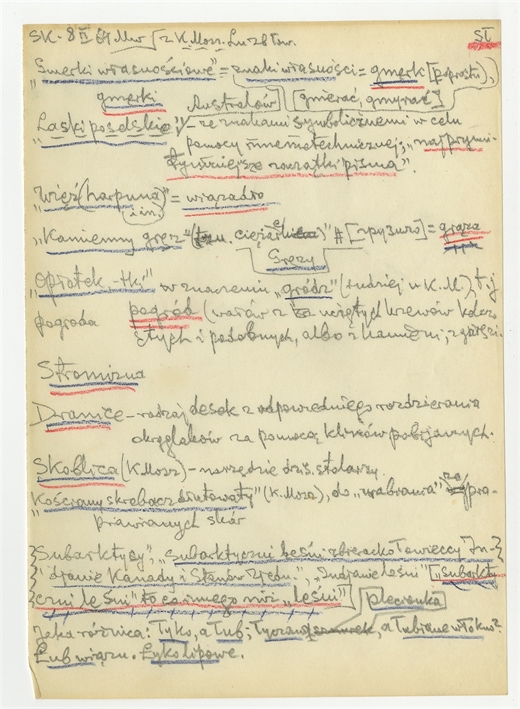 SK - 8 IV 64 Mw / z K. Mosz. Lu zbłow. SŁ
"Smerki własnościowe" = znaki własności = gmerk [poprostu],
gmerki Australów [gmerać, gmyrać]
"Laski poselskie", - ze znakami symbolicznemi w celu
pomocy mnemotechnicznej; "najprymi-
tywniejsze zaczątki pisma".
"Więź (harpuna)" = wiązadło
i in.
"Kamienny gręz" ( . ciężarki) # [z ryzura] = grąza
Gręzy
"Opłotek, -tki" w znaczeniu "gródź" (rzadziej u K.M.), tj
pogroda pogród (wałów z wciętych krzewów kolcz
stych i podobnych, albo z kamieni; z gałęzi.
Stromizna
Dranice - rodzaj desek z odpowiedniego rozdzierania
okrąglaków za pomocą klinów pobijanych.
Skoblica (K. Mosz) - narzędzie dziś. stolarzy.
"Kościany skrobacz dłutowaty" (K. Mosz), do "wabrania" za pra-
prawianych skór
{Subarktycy", "subarktyczni leśni zbieracko łowieccy In-}
{"djanie Kanady i Stanów Zjedn.", "Indjanie leśni" ["subarkty
czni leśni" to co innego niż "leśni"] plecionka
Jaka różnica: Łyko, a łub; łyczana, a łubiane włókno?
Łub wiązu. Łyko lipowe.